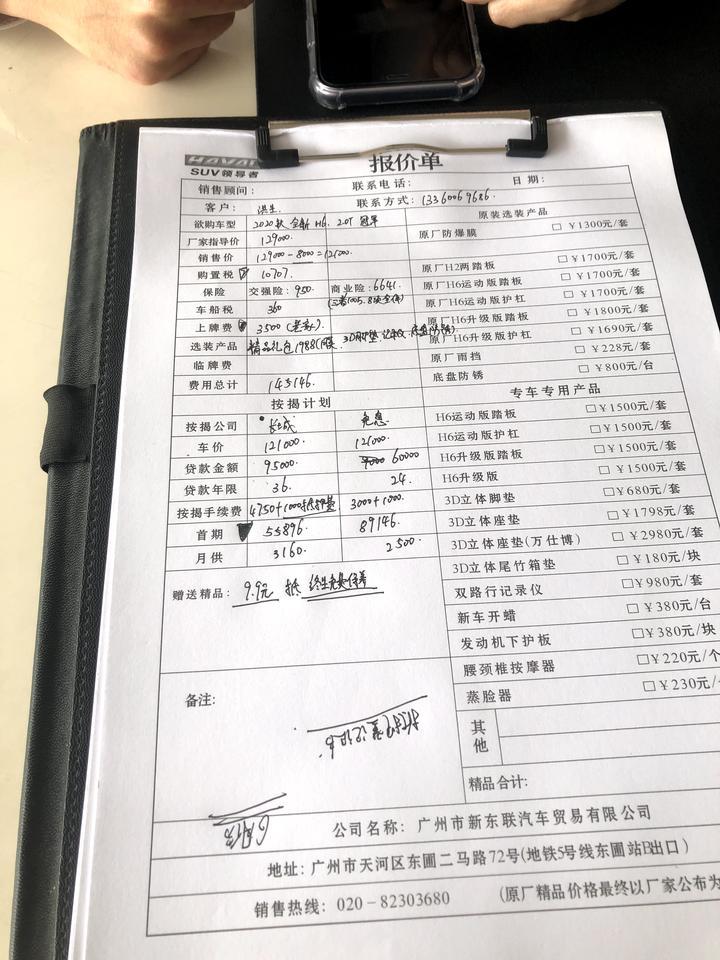 HAVAL
SUV领导者
报价单
销售顾问： 联系电话： 日期：
客户： 洪生. 联系方式：13360069686.
欲购车型 2020款 全新 H6. 2.0T 冠军 原装选装产品
厂家指导价 129000. 原厂防爆膜 □ ¥1300元/套
销售价 129000-8000=121000.
购置税 10707. 原厂H2两踏板 □ ¥1700元/套
保险 交强险：950. 商业险：6641. 原厂H6运动版踏板 □ ¥1700元/套
车船税 360 原厂H6运动版护杠 □ ¥1700元/套
上牌费 3500 原厂H6升级版踏板 □ ¥1800元/套
选装产品 精品礼包1988 原厂H6升级版护杠 □ ¥1690元/套
临牌费 原厂雨挡 □ ¥228元/套
费用总计 145146. 底盘防锈 □ ¥800元/台
按揭计划 专车专用产品
按揭公司 长城 免息 H6运动版踏板 □¥1500元/套
车价 121000 121000 H6运动版护杠 □¥1500元/套
贷款金额 95000. 60000 H6升级版踏板 □¥1500元/套
贷款年限 36. 24. H6升级版 □ ¥1500元/套
按揭手续费 4750+1000 3000+1000. 3D立体脚垫 □¥680元/套
首期 55896 89146. 3D立体座垫 □¥1798元/套
月供 3160 2500. 3D立体座垫(万仕博) □¥2980元/套
3D立体尾竹箱垫 □¥180元/块
赠送精品： 9.9元 抵 终生免费保养 双路行记录仪 □¥980元/套
新车开蜡 □¥380元/台
发动机下护板 □¥380元/块
腰颈椎按摩器 □¥220元/个
备注: 蒸脸器 □¥230元/
其他
精品合计:
公司名称：广州市新东联汽车贸易有限公司
地址：广州市天河区东圃二马路72号(地铁5号线东圃站B出口)
销售热线：020－82303680 (原厂精品价格最终以厂家公布为